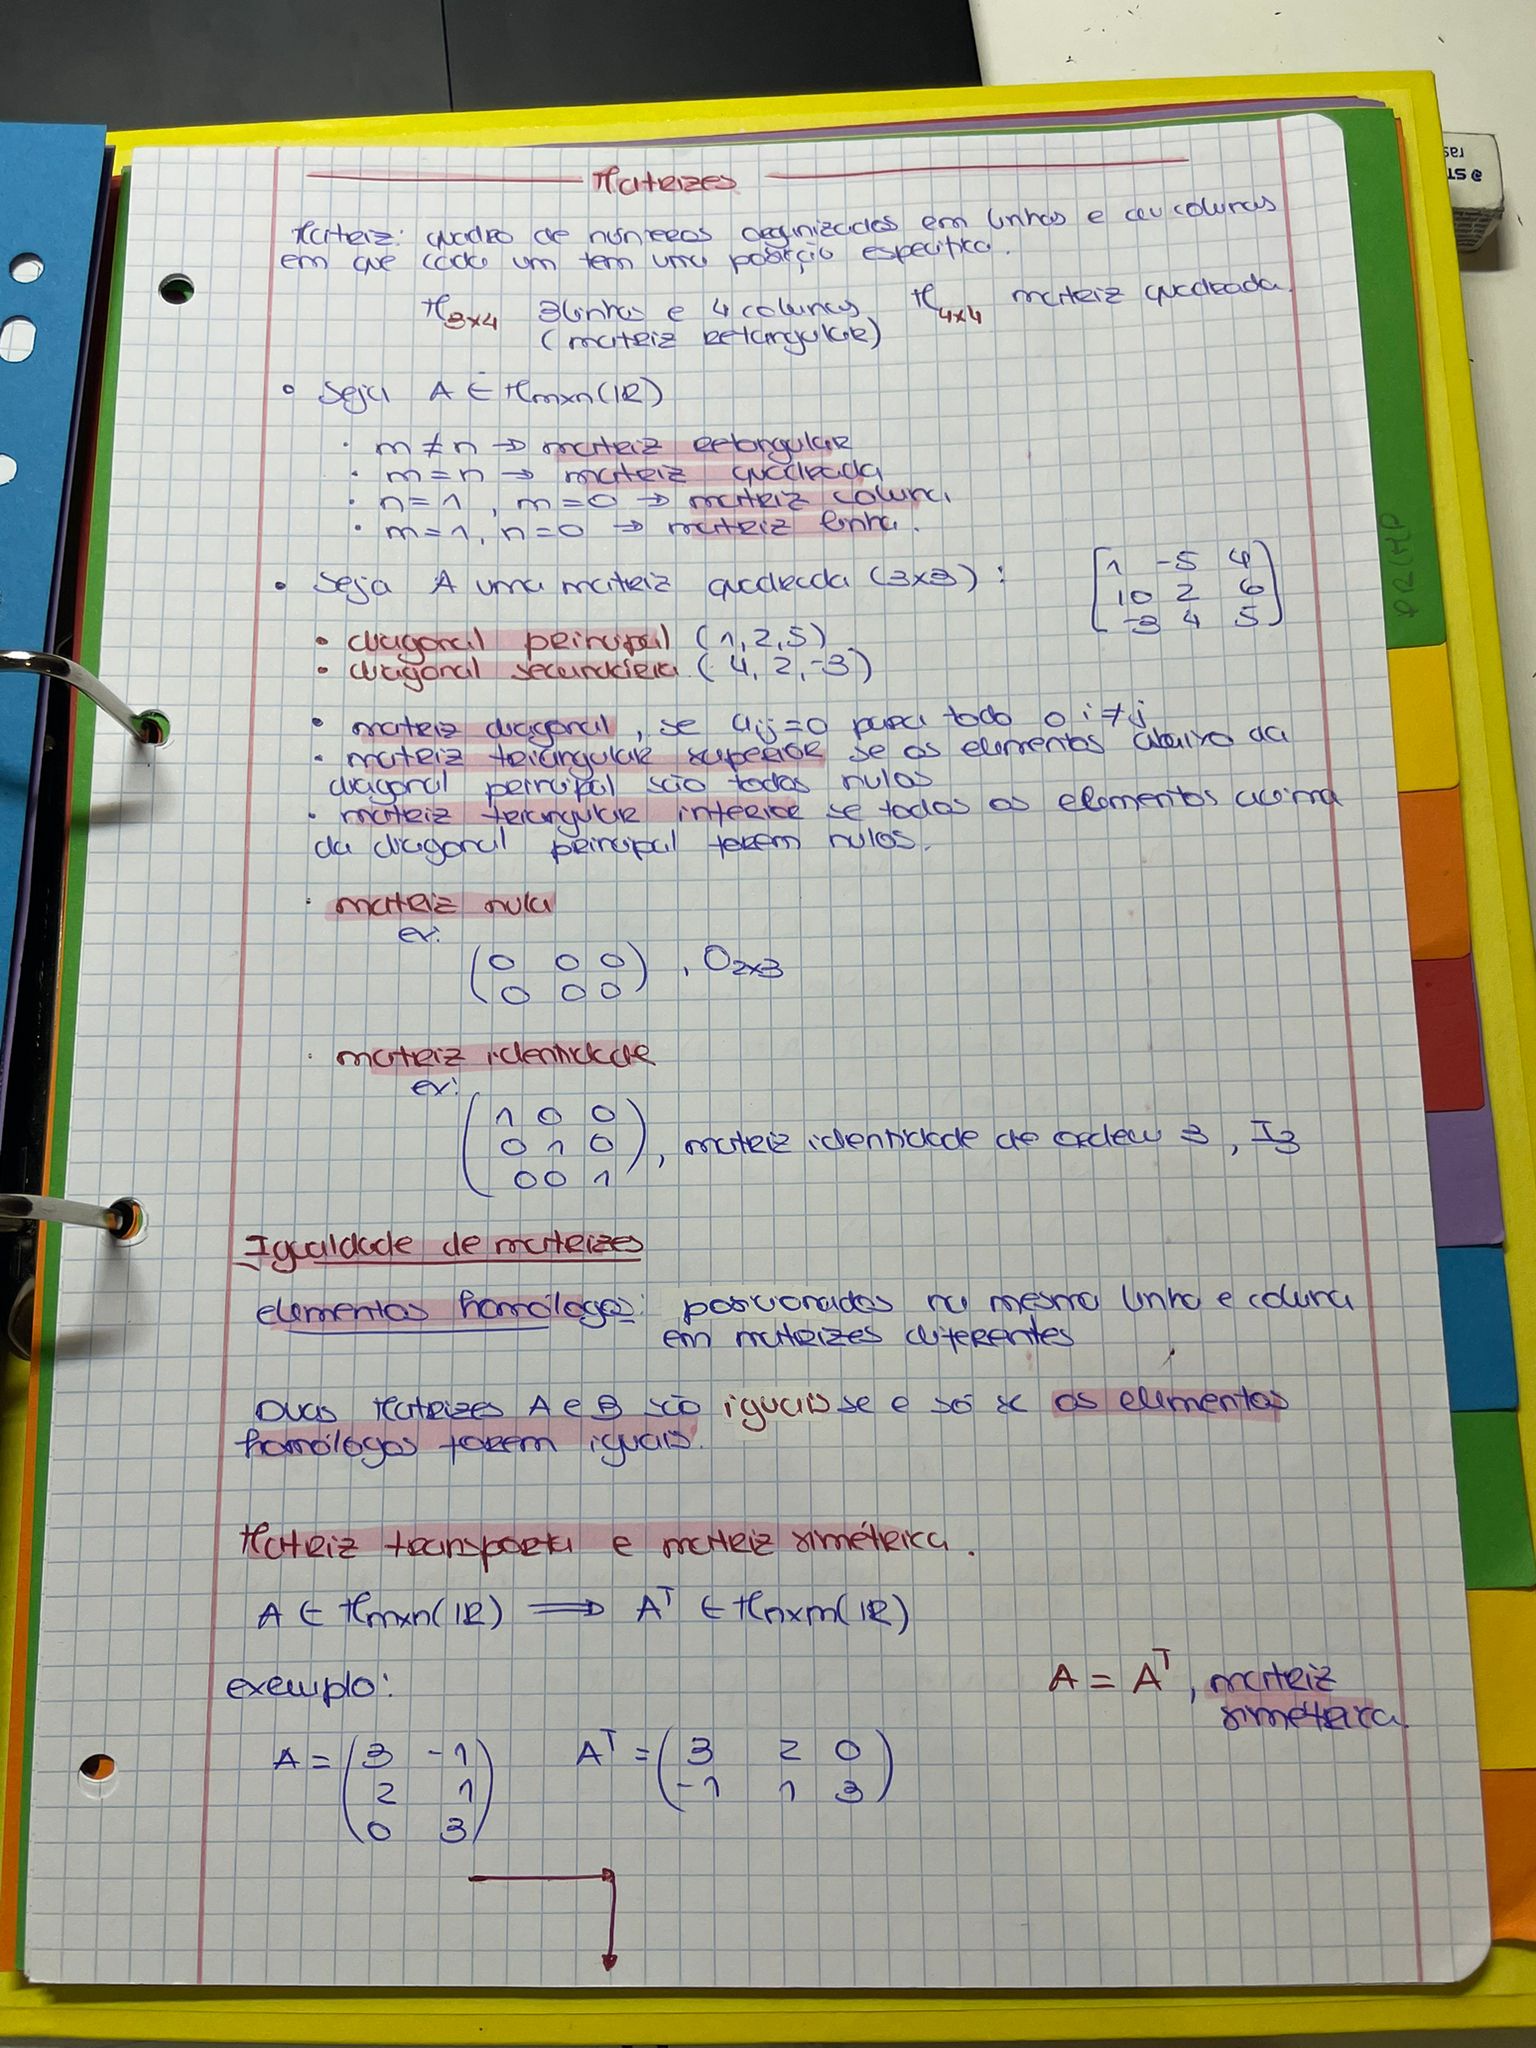 Matrizes
Matriz: quadro de números organizados em linhas e em colunas
em que cada um tem uma posição específica.
M3x4 3linhas e 4 colunas M4x4 matriz quadrada.
(matriz retangular)
• Seja A ∈ Mmxn(IR)
· m ≠ n → matriz retangular
· m = n → matriz quadrada
· n = 1 , m = 0 → matriz coluna
· m = 1, n = 0 → matriz linha.
• Seja A uma matriz quadrada (3x3) :
[1 -5 4
10 2 6
-3 4 5]
• diagonal principal (1, 2, 5)
• diagonal secundária (4, 2, -3)
• matriz diagonal, se aij = 0 para todo o i ≠ j
· matriz triangular superior se os elementos abaixo da
diagonal principal são todos nulos
· matriz triangular inferior se todos os elementos acima
da diagonal principal forem nulos.
· matriz nula
ex:
(0 0 0
0 0 0) , O2x3
· matriz identidade
ex:
(1 0 0
0 1 0
0 0 1) , matriz identidade de ordem 3 , I3
Igualdade de matrizes
elementos homólogos: posicionados na mesma linha e coluna
em matrizes diferentes
Duas Matrizes A e B são iguais se e só se os elementos
homólogos forem iguais.
Matriz transposta e matriz simétrica.
A ∈ Mmxn(IR) ⟹ Aᵀ ∈ Mnxm(IR)
exemplo:
A = Aᵀ, matriz
simétrica.
A = (3 -1
2 1
0 3)
Aᵀ = (3 2 0
-1 1 3)